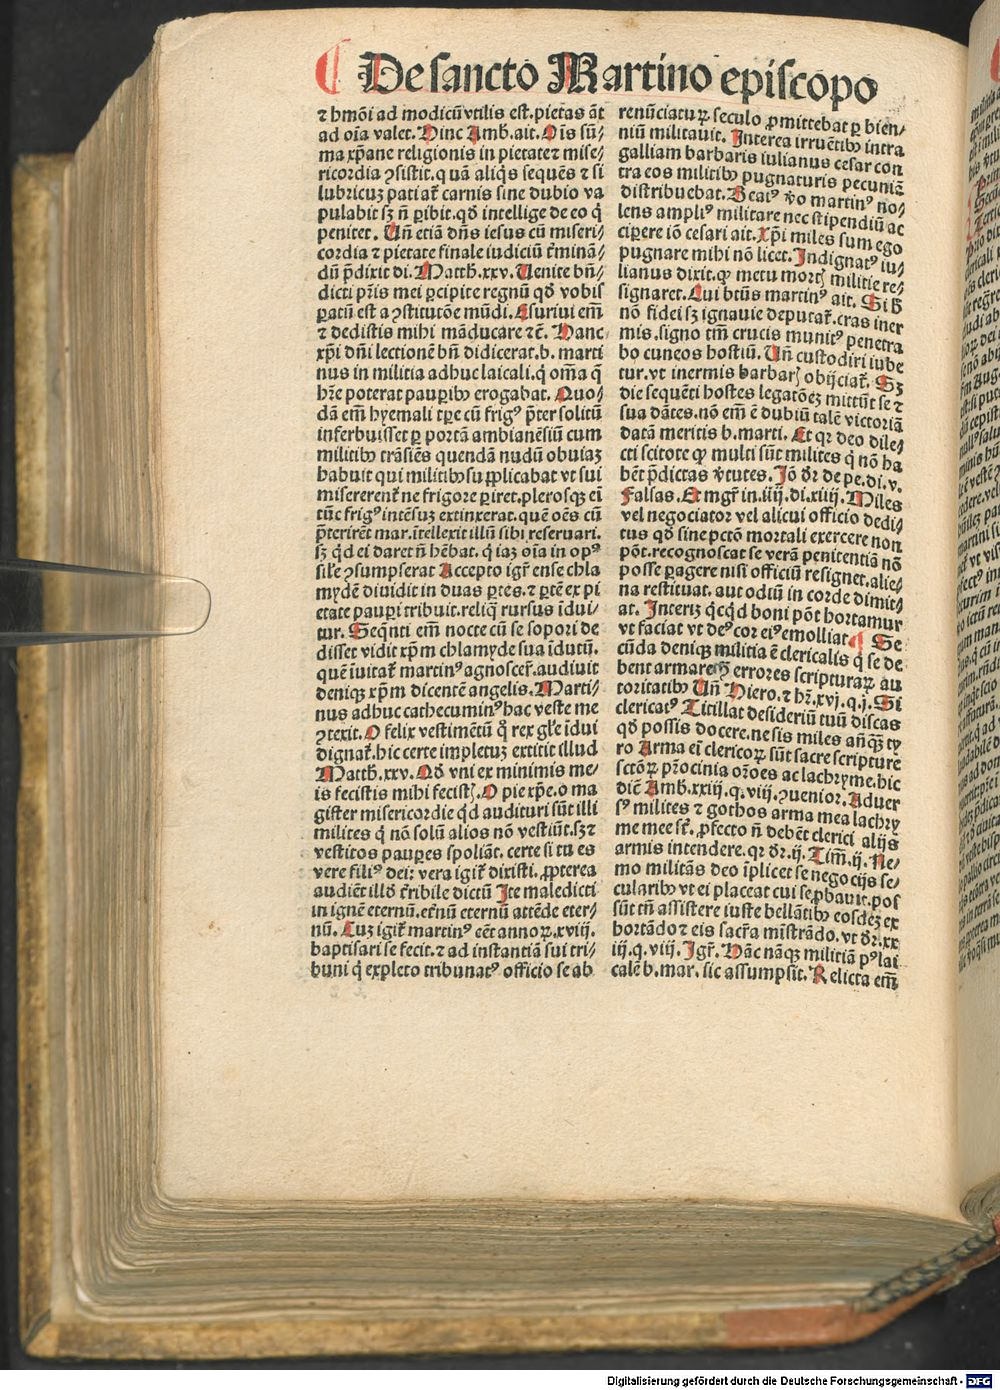 ¶ De sancto Martino episcopo
⁊ hmōi ad modicū vtilis est. pietas āt
ad oīa valet. Hinc Amb. ait. Oīs sū/
ma xp̄ane religionis in pietate ⁊ mise/
ricordia ꝯsistit. quā aliq̇s sequēs ⁊ si
lubricuꝫ patiat᷑ carnis sine dubio va
pulabit sꝫ ñ ꝑibit. qđ intellige de eo q̇
penitet. Uñ etiā dñs iesus cū miseri/
cordia ⁊ pietate finale iudiciū t̄minā/
dū p̄dixit di. Matth. xxv. Uenite bñ/
dicti pr̄is mei ꝑcipite regnū qđ vobis
ꝑatū est a ꝯstitutōe mūdi. Esuriui em̄
⁊ dedistis mihi māducare ⁊c̄. Hanc
xp̄i dñi lectionē bñ didicerat. b. marti
nus in militia adhuc laicali. q̇ oīa q̄
hr̄e poterat pauꝑibꝰ erogabat. Quo/
dā em̄ hyemali tꝑe cū frigꝰ p̄ter solitū
inferbuisset ꝑ portā ambianēsiū cum
militibꝰ trāsiēs quendā nudū obuiaꝫ
habuit qui militibꝰ supplicabat vt sui
misererent᷑ ne frigore ꝑiret. plerosqꝫ ei
tūc frigꝰ intēsuꝫ extinxerat. quē oēs cū
p̄terirēt mar. ītellexit illū sibi reseruari.
sꝫ q̇d ei daret ñ hēbat. q̇ iaꝫ oīa in opꝰ
sil̄e ꝯsumpserat Accepto igr̄ ense chla
mydē diuidit in duas ꝑtes. ⁊ ꝑtē ex pi
etate pauꝑi tribuit. reliq̄ rursus īdui/
tur. Seq̄nti em̄ nocte cū se sopori de
disset vidit xp̄m chlamyde sua īdutū.
quē īuitat᷑ martinꝰ agnoscer̄. audiuit
deniqꝫ xp̄m dicentē angelis. Marti/
nus adhuc cathecuminꝰ hac veste me
ꝯtexit. O felix vestimētū q̊ rex gl̄e īdui
dignat᷑. hic certe impletuꝫ extitit illud
Matth. xxv. Qđ vni ex minimis me/
is fecistis mihi fecistꝭ. O pie xp̄e. o ma
gister misericordie q̇d audituri sūt illi
milites q̇ nō solū alios nō vestiūt. sꝫ ⁊
vestitos pauꝑes spoliāt. certe si tu es
vere filiꝰ dei: vera igit᷑ dixisti. ꝓpterea
audiēt illđ t̄ribile dictū Ite maledicti
in ignē eternū. et̄nū eternū attēde eter/
nū. Cuꝫ igit᷑ martinꝰ eēt annoꝝ. xviij.
baptisari se fecit. ⁊ ad instantiā sui tri/
buni q̇ expleto tribunatꝰ officio se ab
renūciaturꝝ seculo ꝓmittebat ꝑ bien/
niū militauit. Interea irruētibꝰ intra
galliam barbaris iulianus cesar con
tra eos militibꝰ pugnaturis pecuniā
distribuebat. Beatꝰ v̊o martinꝰ no/
lens ampliꝰ militare nec stipendiū ac
cipere iō cesari ait. Xp̄i miles sum ego
pugnare mihi nō licet. Indignatꝰ iu/
lianus dixit. ꝙ metu mortꝭ militie re/
signaret. Cui btūs martinꝰ ait. Si h̄
nō fidei sꝫ ignauie deputat᷑. cras iner
mis. signo tm̄ crucis munitꝰ penetra
bo cuneos hostiū. Uñ custodiri iube
tur. vt inermis barbarꝭ obijciat᷑. Sꝫ
die sequēti hostes legatōeꝫ mittūt se ⁊
sua dātes. nō em̄ ē dubiū talē victoriā
datā meritis b. marti. Et qꝛ deo dile/
cti scitote ꝙ multi sūt milites q̇ nō ha
bēt p̄dictas v̄tutes. Iō dr̄ de pe. di. v.
Falsas. Et mgr̄ in. iiij. di. xiiij. Miles
vel negociator vel alicui officio dedi/
tus qđ sine pctō mortali exercere non
pōt. recognoscat se verā penitentiā nō
posse ꝑagere nisi officiū resignet. alie/
na restituat. aut odiū in corde dimit/
at. Interiꝫ q̇cq̇d boni pōt hortamur
vt faciat vt deꝰ cor eiꝰ emolliat. ¶ Se
cūda deniqꝫ militia ē clericalis q̇ se de
bent armare ꝯ errores scripturaꝝ au
toritatibꝰ Uñ Hiero. ⁊ hr̄. xvj. q. j. Si
clericatꝰ Titillat desideriū tuū discas
qđ possis docere. ne sis miles añq̄ꝫ ty
ro Arma em̄ clericoꝝ sūt sacre scripture
sctōꝝ pr̄ocinia orōes ac lachryme. hic
dic̄ Amb. xxiij. q. viij. ꝯuenior. Aduer
sꝰ milites ⁊ gothos arma mea lachry
me mee st̄. ꝓfecto ñ debēt clerici alijs
armis intendere. qꝛ dr̄. ij. Tim̄. ij. Ne/
mo militās deo īplicet se negocijs se/
cularibꝰ vt ei placeat cui se ꝓbauit. pos
sūt tñ assistere iuste bellātibꝰ eosdēꝫ ex
hortādo ⁊ eis sacr̄a mīstrādo. vt dr̄. xx
iij. q. viij. Igr̄. Hāc nāqꝫ militiā pꝰ lai
calē b. mar. sic assumpsit. Relicta em̄
Digitalisierung gefördert durch die Deutsche Forschungsgemeinschaft - DFG